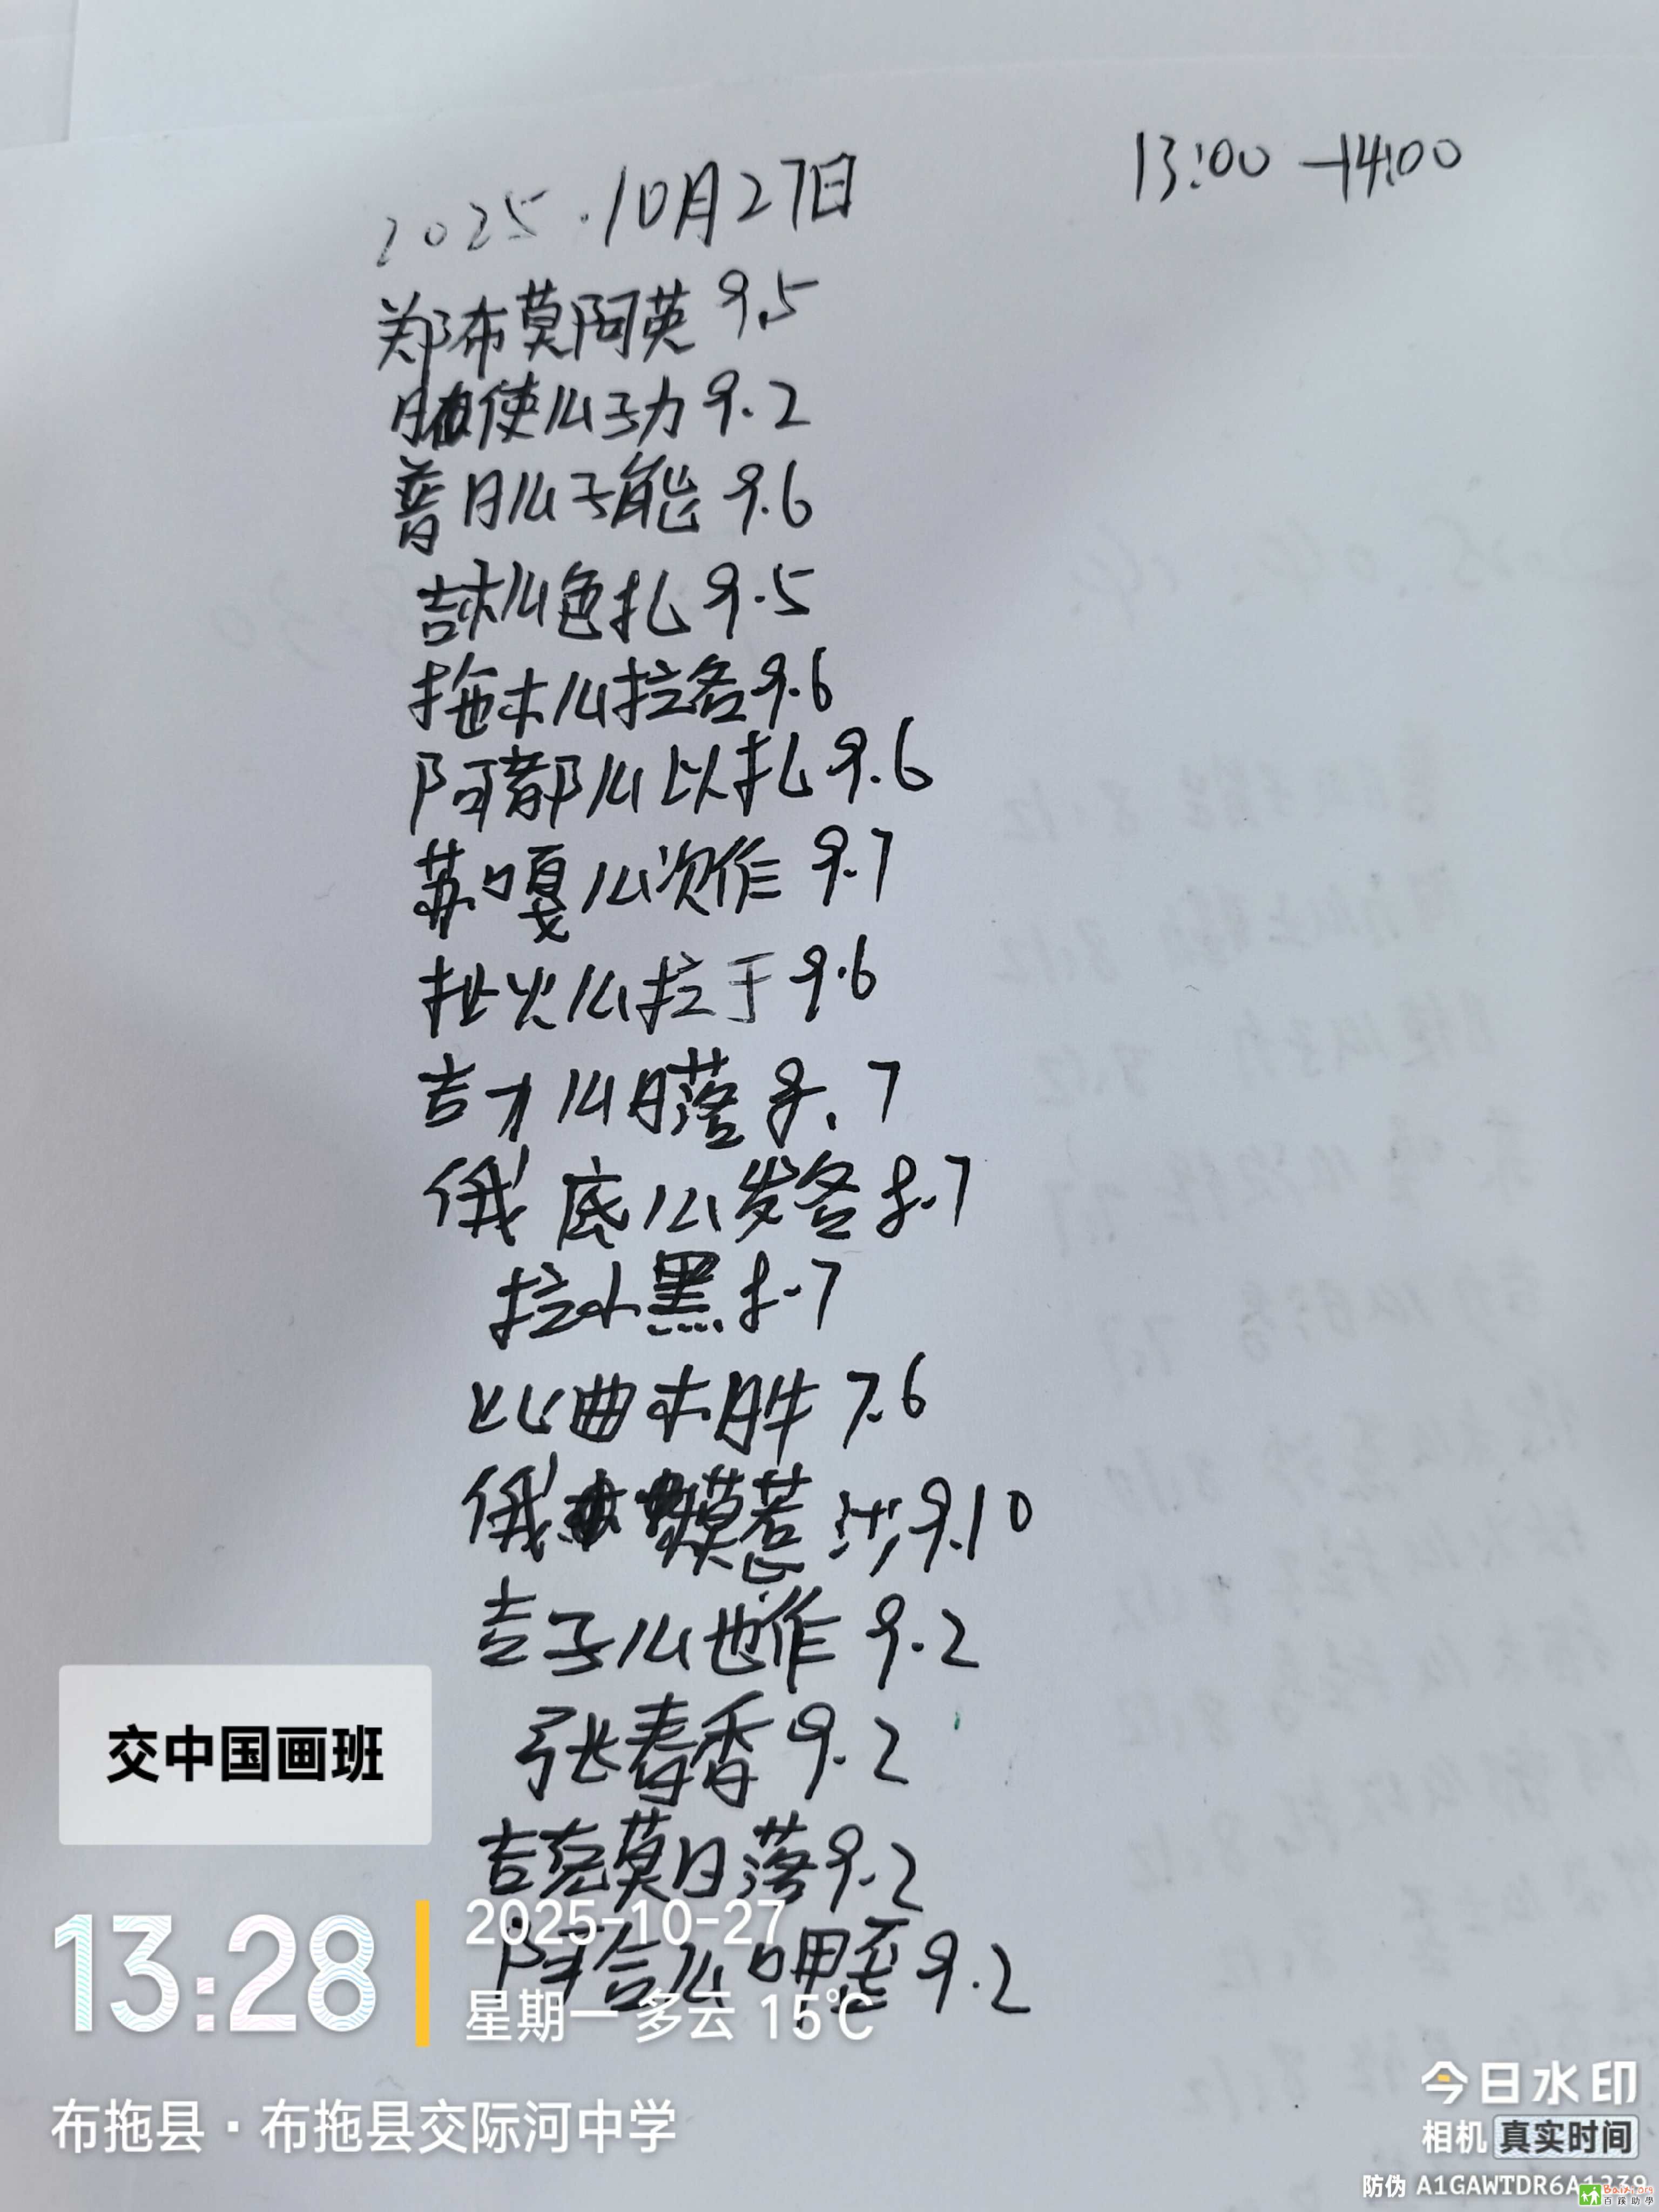 2025.10月27日 13:00-14:00
郑布莫阿英 9.5
使么子力 9.2
普日么子能 9.6
吉木么色扎 9.5
拖木么拉各 9.6
阿都么以扎 9.6
苏嘎么次作 9.7
扯火么拉于 9.6
吉才么日落 8.7
俄底么发各 8.7
拉小黑 8.7
比曲木胜 7.6
俄 莫惹沙 9.10
吉子么也作 9.2
张春香 9.2
吉克莫日落 9.2
么呷歪 9.2
交中国画班
13:28
2025-10-27
星期一 多云 15℃
布拖县·布拖县交际河中学
今日水印
相机 真实时间
防伪 A1GAWTDR6A1239
百蹊助學